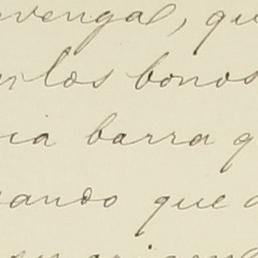 vengal, qu
los bonos
ia barra q
ando que